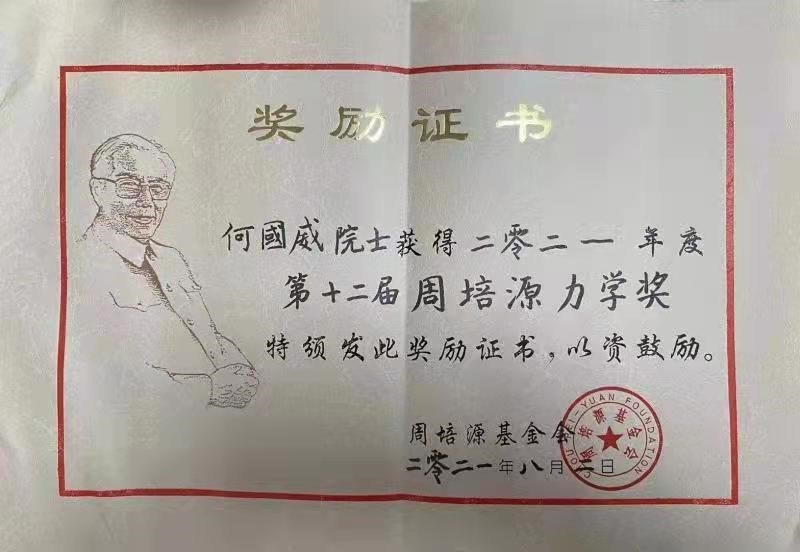 奖励证书
何國威院士获得二零二一年度
第十二届周培源力学奖
特颁发此奖励证书，以资鼓励。
周培源基金会
二零二一年八月二日
CHOU PEI-YUAN FOUNDATION
周培源基金会